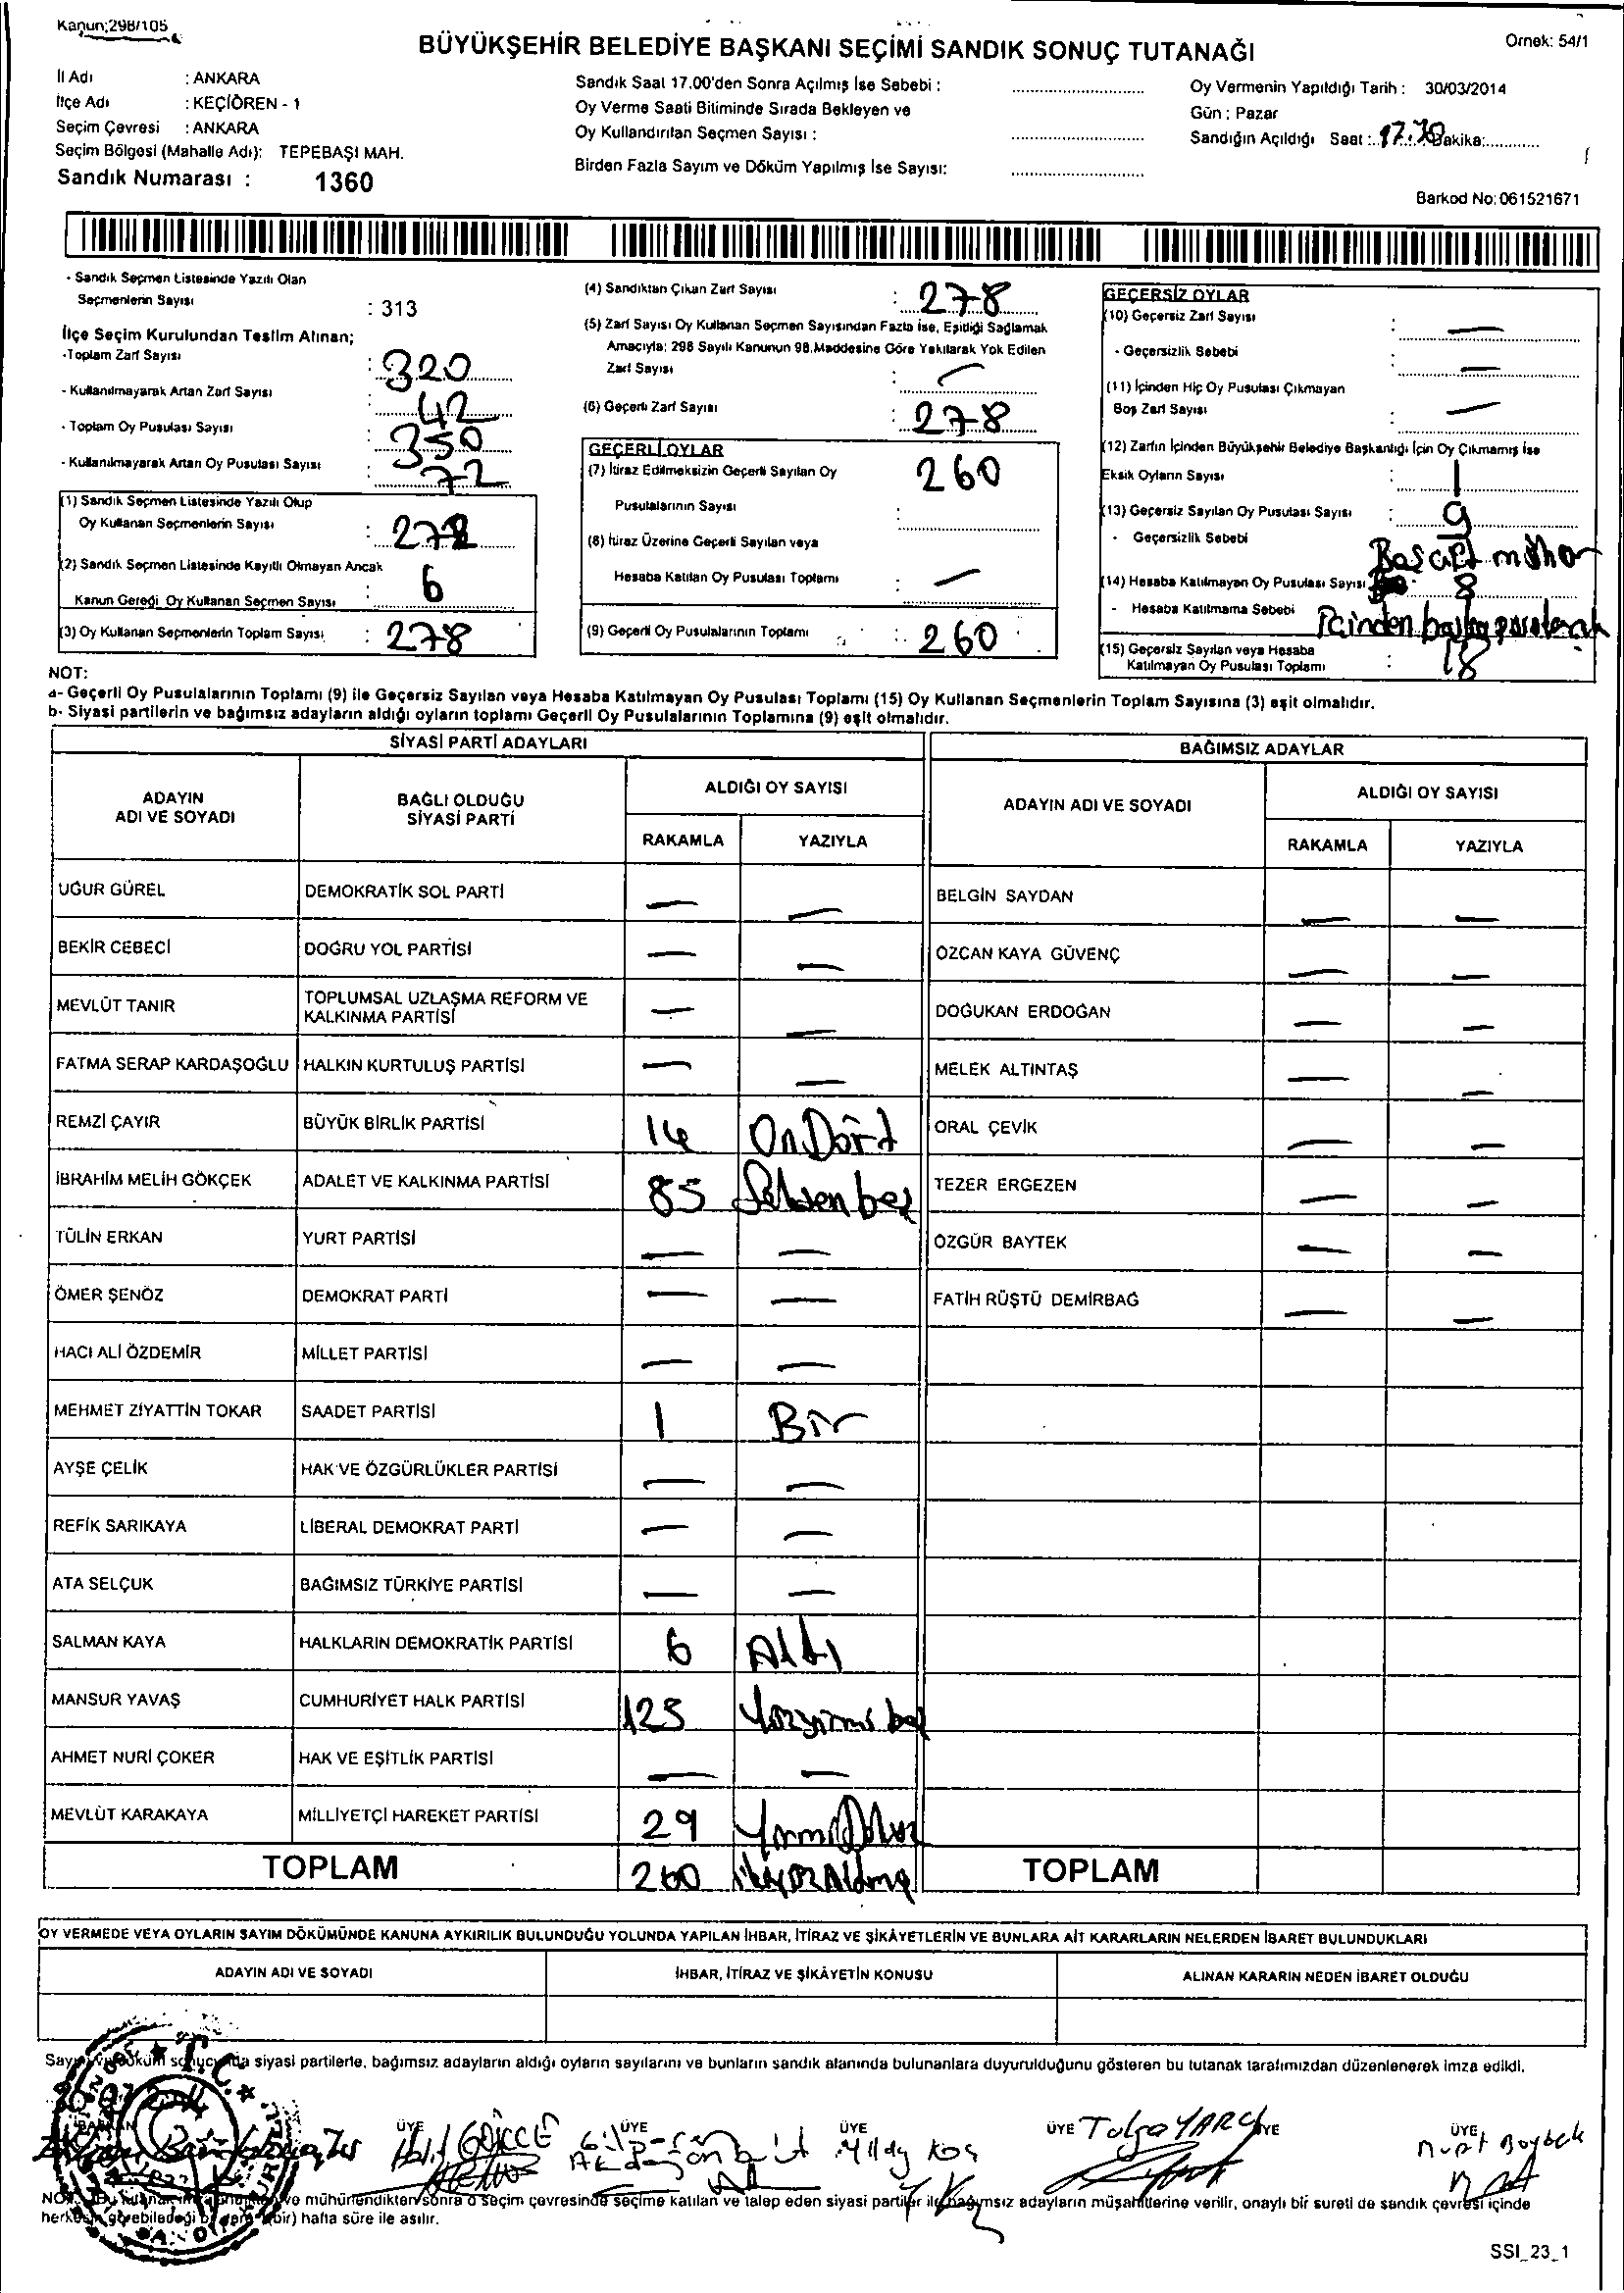 Kanun;298/105
Örnek: 54/1
BÜYÜKŞEHİR BELEDİYE BAŞKANI SEÇİMİ SANDIK SONUÇ TUTANAĞI
İl Adı : ANKARA
İlçe Adı : KEÇİÖREN - 1
Seçim Çevresi : ANKARA
Seçim Bölgesi (Mahalle Adı): TEPEBAŞI MAH.
Sandık Numarası : 1360
Sandık Saat 17.00'den Sonra Açılmış İse Sebebi :
Oy Verme Saati Bitiminde Sırada Bekleyen ve
Oy Kullandırılan Seçmen Sayısı :
Birden Fazla Sayım ve Döküm Yapılmış İse Sayısı:
Oy Vermenin Yapıldığı Tarih : 30/03/2014
Gün : Pazar
Sandığın Açıldığı Saat : 17.30 Dakika:
Barkod No: 061521671
- Sandık Seçmen Listesinde Yazılı Olan
Seçmenlerin Sayısı : 313
İlçe Seçim Kurulundan Teslim Alınan;
-Toplam Zarf Sayısı : 320
- Kullanılmayarak Artan Zarf Sayısı : 42
- Toplam Oy Pusulası Sayısı : 350
- Kullanılmayarak Artan Oy Pusulası Sayısı : 72
(1) Sandık Seçmen Listesinde Yazılı Olup
Oy Kullanan Seçmenlerin Sayısı : 272
(2) Sandık Seçmen Listesinde Kayıtlı Olmayan Ancak
Kanun Gereği Oy Kullanan Seçmen Sayısı : 6
(3) Oy Kullanan Seçmenlerin Toplam Sayısı : 278
(4) Sandıktan Çıkan Zarf Sayısı : 278
(5) Zarf Sayısı Oy Kullanan Seçmen Sayısından Fazla İse, Eşitliği Sağlamak
Amacıyla; 298 Sayılı Kanunun 98.Maddesine Göre Yakılarak Yok Edilen
Zarf Sayısı : —
(6) Geçerli Zarf Sayısı : 278
GEÇERLİ OYLAR
(7) İtiraz Edilmeksizin Geçerli Sayılan Oy 260
Pusulalarının Sayısı :
(8) İtiraz Üzerine Geçerli Sayılan veya
Hesaba Katılan Oy Pusulası Toplamı : —
(9) Geçerli Oy Pusulalarının Toplamı : 260
GEÇERSİZ OYLAR
(10) Geçersiz Zarf Sayısı : —
- Geçersizlik Sebebi : —
(11) İçinden Hiç Oy Pusulası Çıkmayan
Boş Zarf Sayısı : —
(12) Zarfın İçinden Büyükşehir Belediye Başkanlığı İçin Oy Çıkmamış İse
Eksik Oyların Sayısı : 1
(13) Geçersiz Sayılan Oy Pusulası Sayısı : 9
- Geçersizlik Sebebi
(14) Hesaba Katılmayan Oy Pusulası Sayısı : 8
- Hesaba Katılmama Sebebi
(15) Geçersiz Sayılan veya Hesaba
Katılmayan Oy Pusulası Toplamı : 18
NOT:
a- Geçerli Oy Pusulalarının Toplamı (9) ile Geçersiz Sayılan veya Hesaba Katılmayan Oy Pusulası Toplamı (15) Oy Kullanan Seçmenlerin Toplam Sayısına (3) eşit olmalıdır.
b- Siyasi partilerin ve bağımsız adayların aldığı oyların toplamı Geçerli Oy Pusulalarının Toplamına (9) eşit olmalıdır.
SİYASİ PARTİ ADAYLARI
BAĞIMSIZ ADAYLAR
ADAYIN ADI VE SOYADI
BAĞLI OLDUĞU SİYASİ PARTİ
ALDIĞI OY SAYISI
RAKAMLA YAZIYLA
ADAYIN ADI VE SOYADI
ALDIĞI OY SAYISI
RAKAMLA YAZIYLA
UĞUR GÜREL DEMOKRATİK SOL PARTİ — — BELGİN SAYDAN — —
BEKİR CEBECİ DOĞRU YOL PARTİSİ — — ÖZCAN KAYA GÜVENÇ — —
MEVLÜT TANIR TOPLUMSAL UZLAŞMA REFORM VE KALKINMA PARTİSİ — — DOĞUKAN ERDOĞAN — —
FATMA SERAP KARDAŞOĞLU HALKIN KURTULUŞ PARTİSİ — — MELEK ALTINTAŞ — —
REMZİ ÇAYIR BÜYÜK BİRLİK PARTİSİ 14 OnDört ORAL ÇEVİK — —
İBRAHİM MELİH GÖKÇEK ADALET VE KALKINMA PARTİSİ 85 Seksen beş TEZER ERGEZEN — —
TÜLİN ERKAN YURT PARTİSİ — — ÖZGÜR BAYTEK — —
ÖMER ŞENÖZ DEMOKRAT PARTİ — — FATİH RÜŞTÜ DEMİRBAĞ — —
HACI ALİ ÖZDEMİR MİLLET PARTİSİ — —
MEHMET ZİYATTİN TOKAR SAADET PARTİSİ 1 Bir
AYŞE ÇELİK HAK VE ÖZGÜRLÜKLER PARTİSİ — —
REFİK SARIKAYA LİBERAL DEMOKRAT PARTİ — —
ATA SELÇUK BAĞIMSIZ TÜRKİYE PARTİSİ — —
SALMAN KAYA HALKLARIN DEMOKRATİK PARTİSİ 6 Altı
MANSUR YAVAŞ CUMHURİYET HALK PARTİSİ 125 Yüzyirmi beş
AHMET NURİ ÇOKER HAK VE EŞİTLİK PARTİSİ — —
MEVLÜT KARAKAYA MİLLİYETÇİ HAREKET PARTİSİ 29 YirmiDokuz
TOPLAM 260 ikiyüzAltmış TOPLAM
OY VERMEDE VEYA OYLARIN SAYIM DÖKÜMÜNDE KANUNA AYKIRILIK BULUNDUĞU YOLUNDA YAPILAN İHBAR, İTİRAZ VE ŞİKÂYETLERİN VE BUNLARA AİT KARARLARIN NELERDEN İBARET BULUNDUKLARI
ADAYIN ADI VE SOYADI İHBAR, İTİRAZ VE ŞİKÂYETİN KONUSU ALINAN KARARIN NEDEN İBARET OLDUĞU
siyasi partilerle, bağımsız adayların aldığı oyların sayılarını ve bunların sandık alanında bulunanlara duyurulduğunu gösteren bu tutanak tarafımızdan düzenlenerek imza edildi.
T.C.
ÜYE ÜYE ÜYE ÜYE ÜYE ÜYE
Halil GÖKCE
Yıldız Koş
Tolga
ve mühürlendikten sonra o seçim çevresinde seçime katılan ve talep eden siyasi partiler ile bağımsız adayların müşahitlerine verilir, onaylı bir sureti de sandık çevresi içinde
herkesin görebileceği bir yere (bir) hafta süre ile asılır.
SSI_23_1